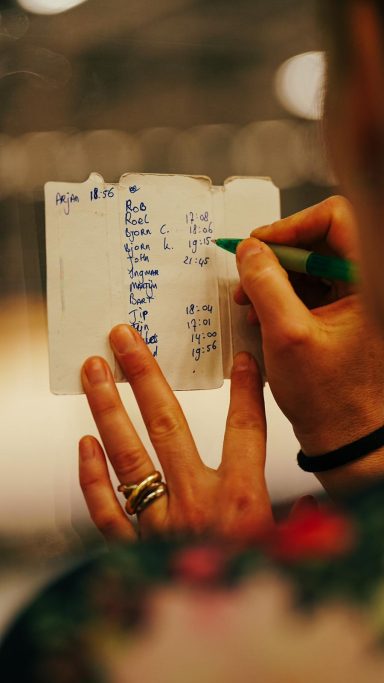 Arjan 18:56
Rob
Roel 17:08
Bjorn C. 18:06
Bjorn K. 19:15
21:45
Ingmar
Martijn
Bart
Jip 18:04
17:01
14:00
19:56